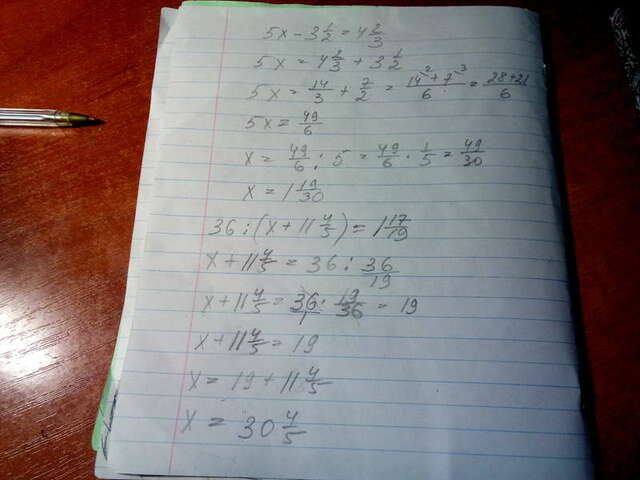 5x - 3 1/2 = 4 2/3
5x = 4 2/3 + 3 1/2
5x = 14/3 + 7/2 = 14² + 7³/6 = 28+21/6
5x = 49/6
x = 49/6 : 5 = 49/6 · 1/5 = 49/30
x = 1 19/30
36 : (x + 11 4/5) = 1 17/19
x + 11 4/5 = 36 : 36/19
x + 11 4/5 = 36/1 · 19/36 = 19
x + 11 4/5 = 19
x = 19 + 11 4/5
x = 30 4/5